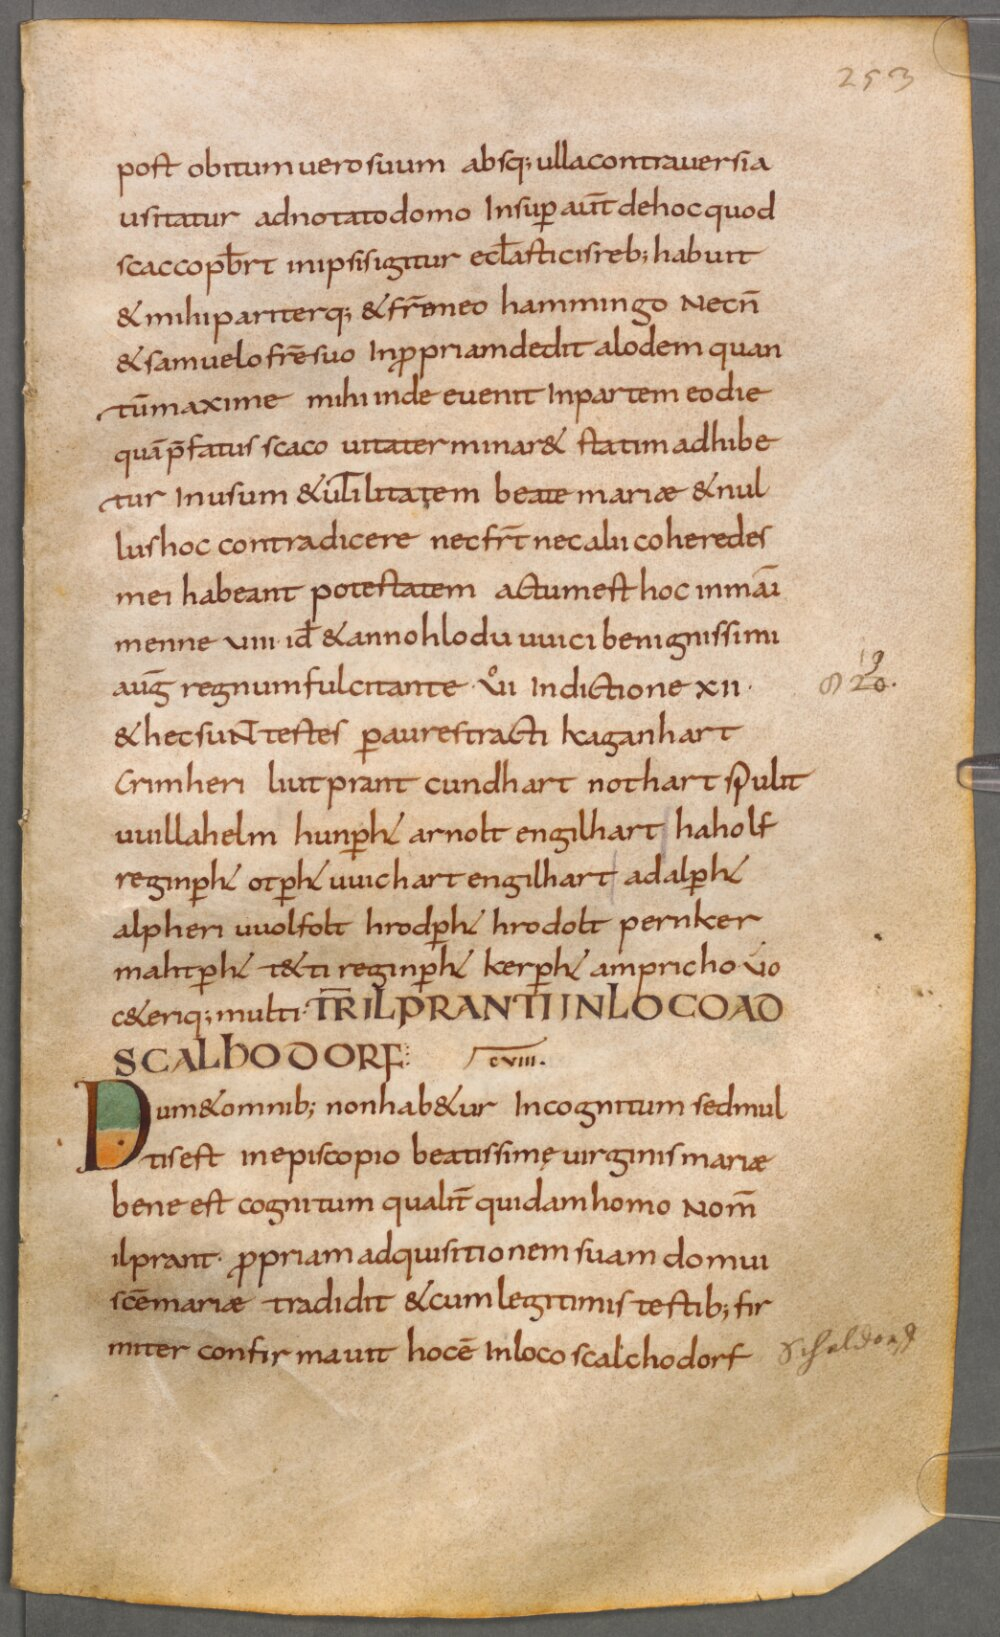 253
post obitum uero suum absq; ulla contrauersia
usitatur adnotato domo Insup aut̄ dehoc quod
scaccop̄brt inipsis igitur ecl̄asticis reb; habuit
& mihi pariterq; & fr̄e meo hammingo Necn̄
& samuelo fr̄e suo Inpropriam dedit alodem quan
tū maxime mihi inde euenit Inpartem eodie
quā p̄fatus scaco uita terminar& statim adhibe
tur Inusum & utilitatem beate mariæ & nul
lus hoc contradicere nec fr̄t nec alii coheredes
mei habeant potestatem actum est hoc inmāi
menne uiii id̄ & anno hloduuuici benignissimi
aug̅ regnum fulcitante ui̊i Indictione xii·
19
20.
& hec suNt testes p aures tracti kaganhart
Crimheri liutprant cundhart nothart spulit
uuillahelm hunp̄h& arnolt engilhart haholf
reginp̄h& otp̄h& uuichart engilhart adalp̄h&
alpheri uuolfolt hrodp̄h& hrodolt pernker
mahtp̄h& t&ti reginp̄h& kerp̄h& ampricho
c&eriq; multi· TR̄ ILPRANTI IN LOCO AD
SCALHODORF: cviii.
Dum & omnib; non hab&ur Incognitum sed mul
tis est inepiscopio beatissimę uirginis mariæ
bene est cognitum qualit̄ quidam homo Nom̄
ilprant· propriam adquisitionem suam domui
scē mariæ tradidit & cum legitimis testib; fir
miter confirmauit hoc ē Inloco scalchodorf